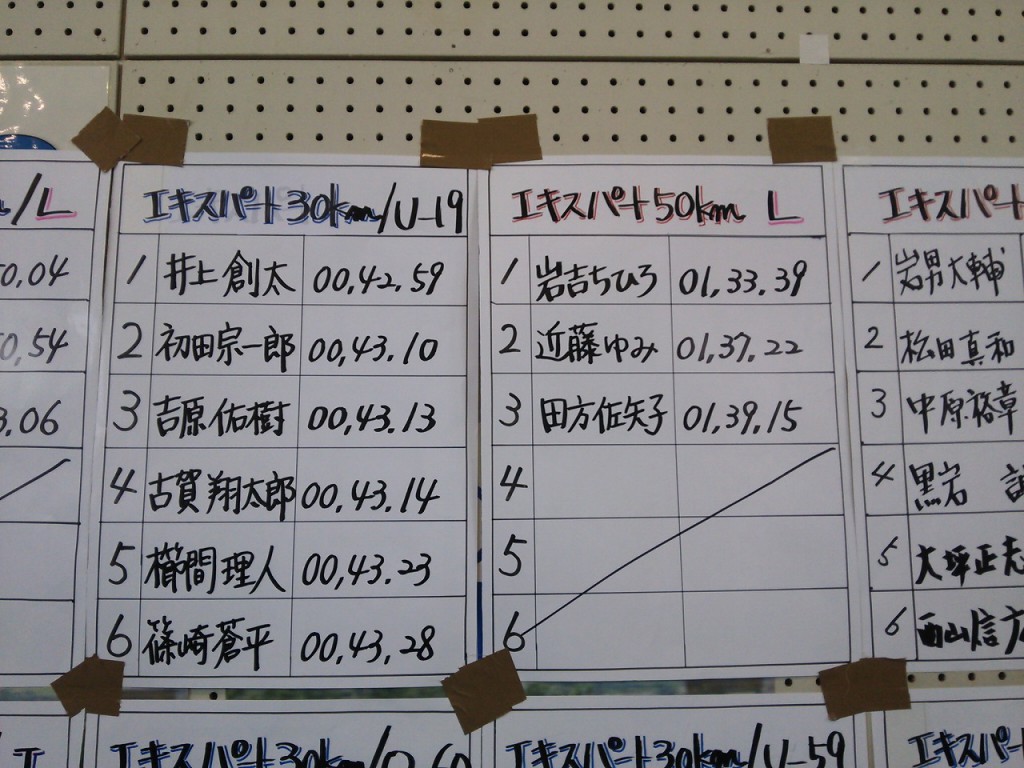 /L
0.04
0,54
3.06
エキスパート30km/U-19
1 井上創太 00,42,59
2 初田宗一郎 00,43.10
3 吉原佑樹 00,43.13
4 古賀翔太郎 00,43.14
5 櫛間理人 00,43.23
6 篠崎蒼平 00,43,28
エキスパート50km L
1 岩吉ちひろ 01,33.39
2 近藤ゆみ 01,37.22
3 田方佐矢子 01,39.15
4
5
6
エキスパート
1 岩男大輔
2 松田真和
3 中原裕章
4 黒岩
5 大坪正志
6 西山信方
エキスパート30km/O-60
エキスパート30km/U-59
エキスパ